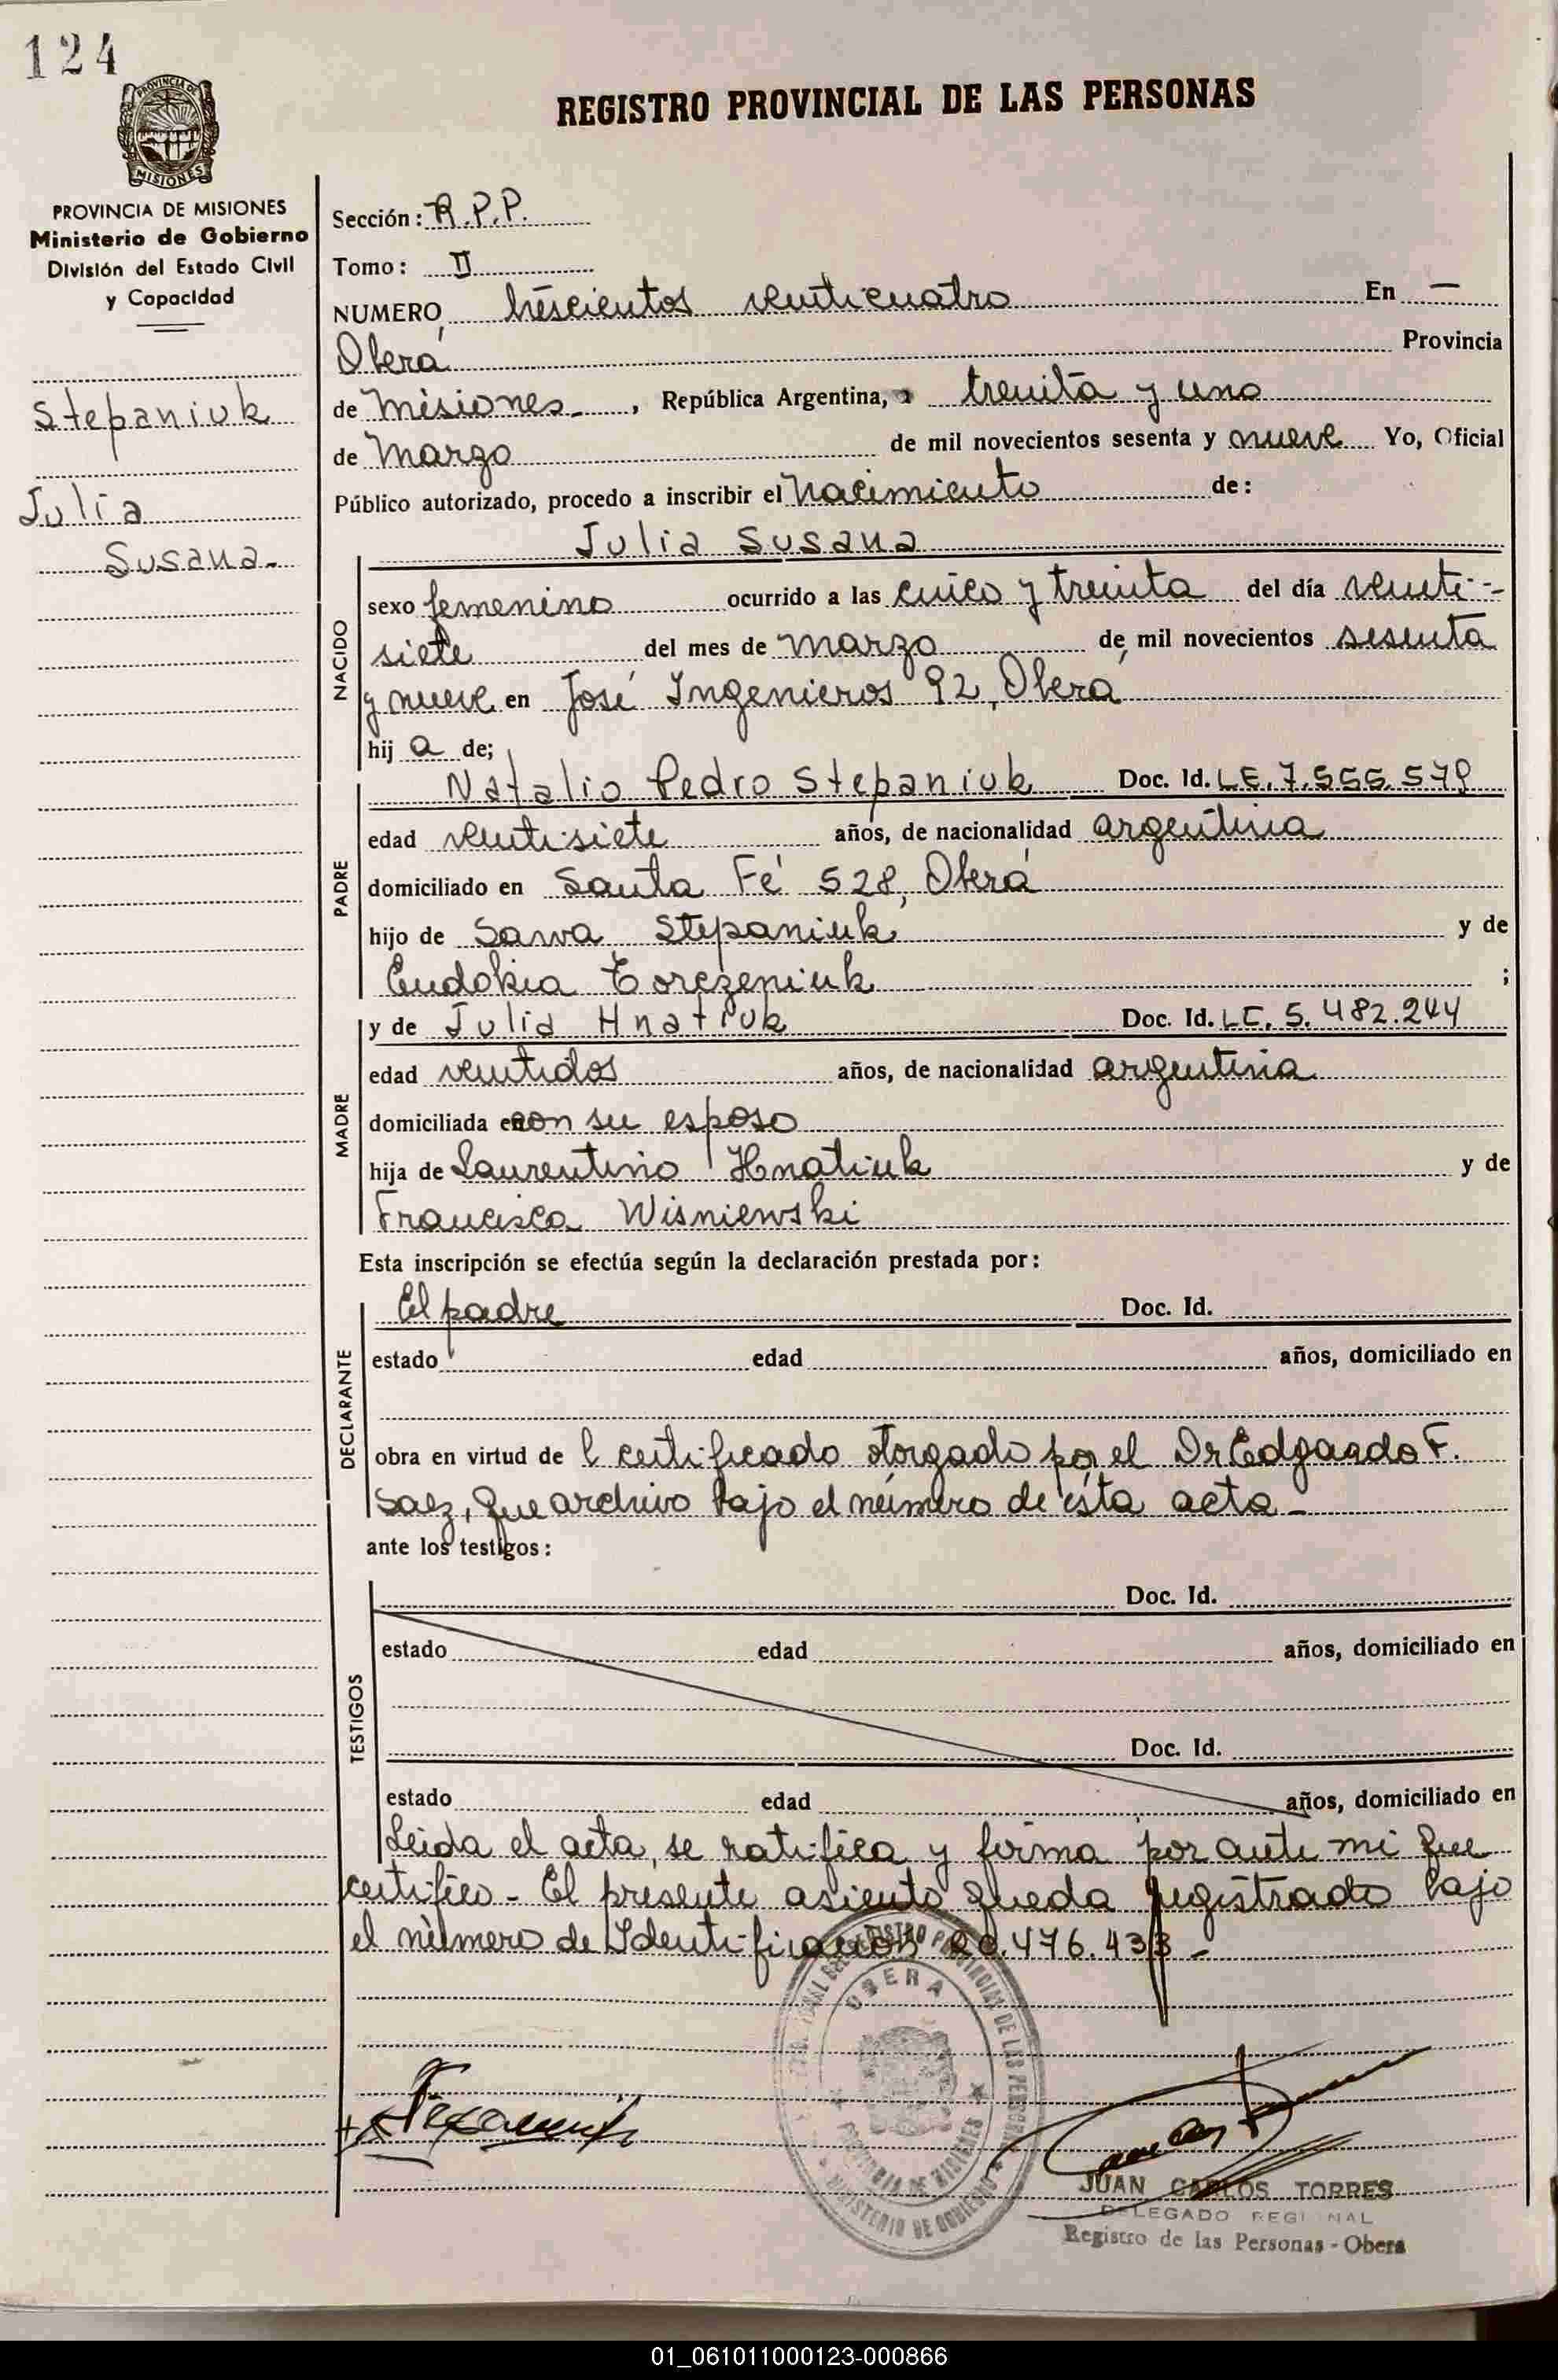 124
REGISTRO PROVINCIAL DE LAS PERSONAS
PROVINCIA DE MISIONES
PROVINCIA DE MISIONES
Ministerio de Gobierno
División del Estado Civil
y Capacidad
Stepaniuk
Julia
Susana.
Sección: R.P.P.
Tomo: II
NUMERO trescientos venticuatro En —
Oberá Provincia
de Misiones, República Argentina, a treinta y uno
de Marzo de mil novecientos sesenta y nueve Yo, Oficial
Público autorizado, procedo a inscribir el Nacimiento de:
Julia Susana
NACIDO
sexo femenino ocurrido a las cinco y treinta del día venti-
siete del mes de marzo de mil novecientos sesenta
y nueve en José Ingenieros 92, Oberá
hij a de;
Natalio Pedro Stepaniuk Doc. Id. LE. 7.555.579
PADRE
edad ventisiete años, de nacionalidad argentina
domiciliado en Santa Fé 528, Oberá
hijo de Sawa Stepaniuk y de
Eudokia Torczeniuk ;
y de Julia Hnatiuk Doc. Id. LC. 5.482.244
MADRE
edad ventidos años, de nacionalidad argentina
domiciliada con su esposo
hija de Laurentino Hnatiuk y de
Francisca Wisniewski
Esta inscripción se efectúa según la declaración prestada por:
El padre Doc. Id.
DECLARANTE
estado edad años, domiciliado en
obra en virtud de l certificado otorgado por el Dr Edgardo F.
Saez, que archivo bajo el número de ésta acta -
ante los testigos:
Doc. Id.
TESTIGOS
estado edad años, domiciliado en
Doc. Id.
estado edad años, domiciliado en
Leida el acta, se ratifica y firma por ante mi que
certifico - El presente asiento queda registrado bajo
el número de Identificación 20.476.433 -
OBERA
PROVINCIA DE MISIONES
MINISTERIO DE GOBIERNO
JUAN CARLOS TORRES
DELEGADO REGIONAL
Registro de las Personas - Oberá
01_061011000123-000866